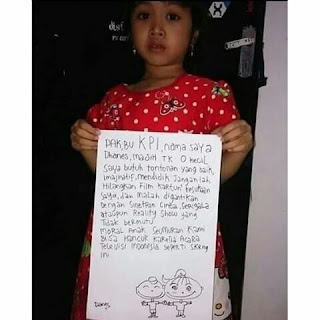 PAK,BU KPI, nama saya
Dhanes, madih TK 0 kecil
Saya butuh tontonan yang baik,
imajinatif, mendidik. Jangan lah
Hilangkan Film kartun kesukaan
Saya, dan malah digantikan
Dengan Sinetron Cinta, Serigala
ataupun Reality Show yang
Tidak bermutu
MORAL Anak SeumuRan Kami
BISA Hancur karena Acara
Televisi Indonesia seperti
ini